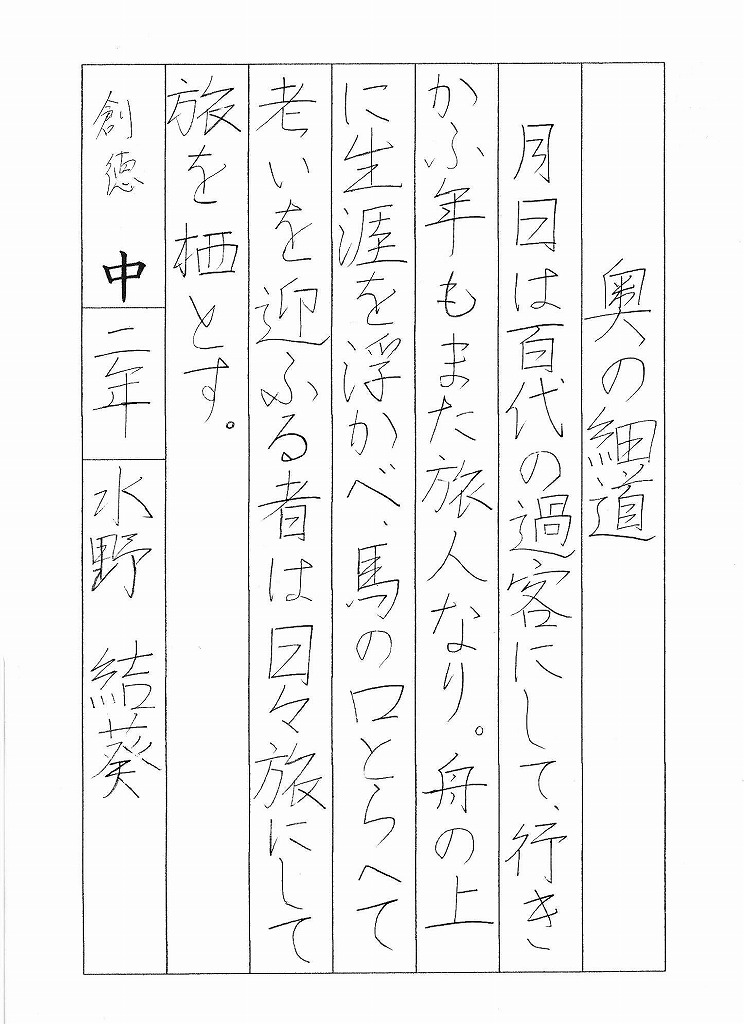 奥の細道
月日は百代の過客にして、行き
かふ年もまた旅人なり。舟の上
に生涯を浮かべ、馬の口とらへて
老いを迎ふる者は日々旅にして
旅を栖とす。
創徳中 二年 水野 結葵